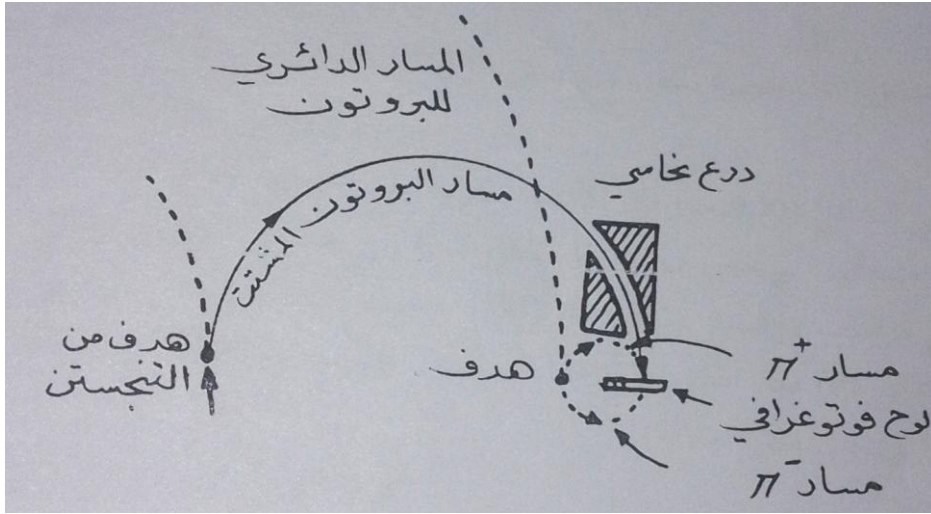 المسار الدائري
للبروتون
درع نحاسي
مسار البروتون المشتت
هدف من
التنجستن
هدف
مسار π⁺
لوح فوتوغرافي
مسار π⁻